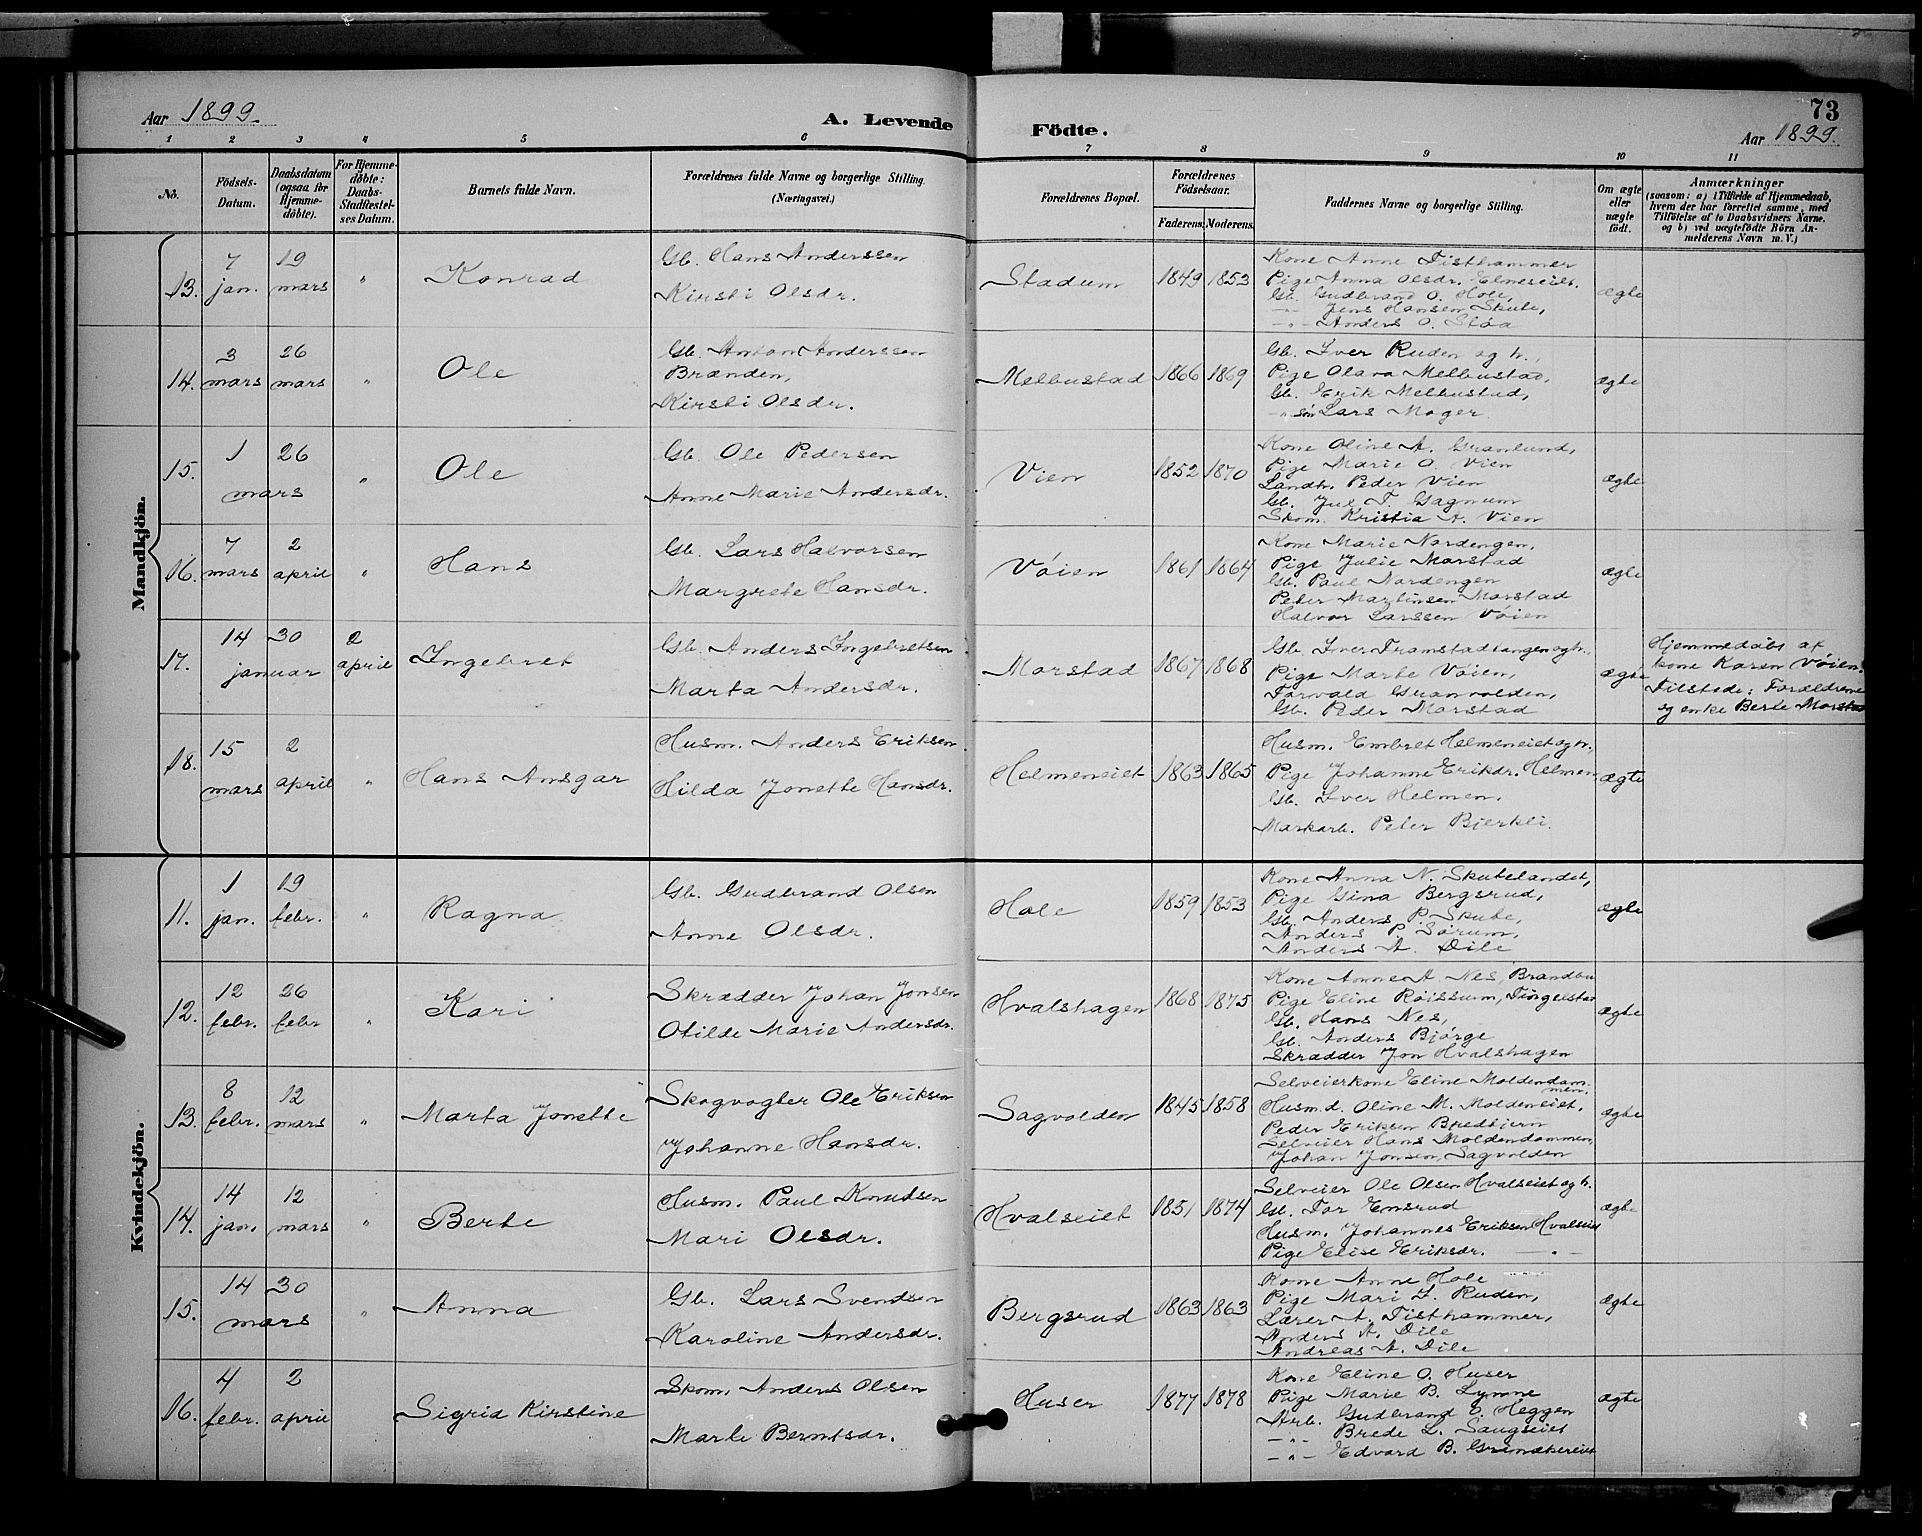 Aar 1899.
A. Levende
Födte.
73
Aar 1899.
1 2 3 4 5 6 7 8 9 10 11
No.
Födsels-Datum.
Daabsdatum (ogsaa for Hjemme-döbte).
For Hjemme-döbte: Daabs-Stadfæstel-ses Datum.
Barnets fulde Navn.
Forældrenes fulde Navne og borgerlige Stilling. (Næringsvei.)
Forældrenes Bopæl.
Forældrenes Födselsaar.
Faderens. Moderens.
Faddernes Navne og borgerlige Stilling.
Om ægte eller uægte födt.
Anmærkninger
(saasom: a) i Tilfælde af Hjemmedaab,
hvem der har forrettet samme, med
Tilföielse af to Daabsvidners Navne,
og b) ved uægtefödte Börn An-
melderens Navn m. V.)
Mandkjön.
13. 7 jan. 19 mars " Konrad
Gb. Hans Anderssen
Kirsti Olsdr.
Stadum 1849 1853
Kone Anne Tisthammer
Pige Anna Olsdr. Elmeseiet.
Gb. Gudbrand O. Hole,
-"- Jens Hansen Skute,
-"- Anders O. Støa
ægte
14. 3 mars 26 mars " Ole
Gb. Anton Anderssen
Brænden,
Kirsti Olsdr.
Melbustad 1866 1869
Gb. Iver Ruden og h.,
Pige Olava Melbustad,
Gb. Erik Melbustad,
-"- søn Lars Moger
ægte
15. 1 26 mars " Ole
Gb. Ole Pedersen
Anne Marie Andersdr.
Vien 1852 1870
Kone Oline A. Granlund,
Pige Marie O. Vien
Landh. Peder Vien
Gb. Jul T. Gagnum
Skom. Kristia A. Vien
ægte
16. 7 mars 2 april " Hans
Gb. Lars Halvorsen
Margrete Hansdr.
Vøien 1861 1864
Kone Marie Nordengen,
Pige Julie Morstad
Gb. Paul Nordengen
Peter Martinsen Morstad
Halvor Larssen Vøien
ægte
17. 14 30 januar 2 april Ingebret
Gb. Anders Ingebretsen
Marta Andersdr.
Morstad 1867 1868
Gb. Iver Framstadtangen og h.,
Pige Marte Vøien,
Torvald Granvolden,
Gb. Peder Morstad
ægte
Hjemmedøbt af
kone Karen Vøien.
Tilstede: Forældrene
og enke Berte Morstad
18. 15 mars 2 april " Hans Ansgar
Husm. Anders Eriksen
Hilda Jonette Hansdr.
Helmeneiet 1863 1865
Husm. Embret Helmeneiet og h.
Pige Johanne Erikdr. Helmen
Gb. Iver Helmen.
Markarb. Peter Bjerkli.
ægte
Kvindekjön.
11. 1 jan. 19 febr. " Ragna
Gb. Gudbrand Olsen
Anne Olsdr.
Hole 1859 1853
Kone Anna N. Skutelandet,
Pige Gina Bergsrud,
Gb. Anders P. Skute,
Anders P. Sørum,
Anders A. Dile
ægte
12. 12 febr. 26 febr " Kari
Skrædder Johan Jonsen
Otilde Marie Andersdr.
Hvalshagen 1868 1875
Kone Anne A Nes, Brandbu
Pige Eline Røissum, Tingelstad
Gb. Hans Nes,
Gb. Anders Bjørge
Skrædder Jon Hvalshagen
ægte
13. 8 febr. 12 mars " Marta Jonette
Skogvogter Ole Eriksen
Johanne Hansdr.
Sagvolden 1845 1858
Selveierkone Eline Moldendam-
men.
Husm.d. Oline M. Moldeneiet,
Peder Eriksen Bredtjern
Selveier Hans Moldendammen,
Johan Jonsen, Sagvolden
ægte
14. 14 jan. 12 mars " Berte
Husm. Paul Knudsen
Mari Olsdr.
Hvalseiet 1851 1874
Selveier Ole Olsen Hvalseiet og h.
Gb. Tor Emsrud
Husm. Johannes Eriksen Hvalseiet
Pige Elise Eriksdr. -"-
ægte
15. 14 30 mars " Anna
Gb. Lars Svendsen
Karoline Andersdr.
Bergsrud 1863 1863
Kone Anne Hole
Pige Mari I. Ruden,
Lærer A. Tisthammer,
Anders A. Dile
Andreas A. Dile
ægte
16. 4 febr. 2 april Sigrid Kirstine
Skom. Anders Olsen
Marte Berntsdr.
Huser 1877 1878
Kone Eline O. Huser
Pige Marie B. Lynne
Arb. Gudbrand O. Heggen
-"- Brede L. Saugseiet
-"- Edvard B. Grinakereiet
ægte